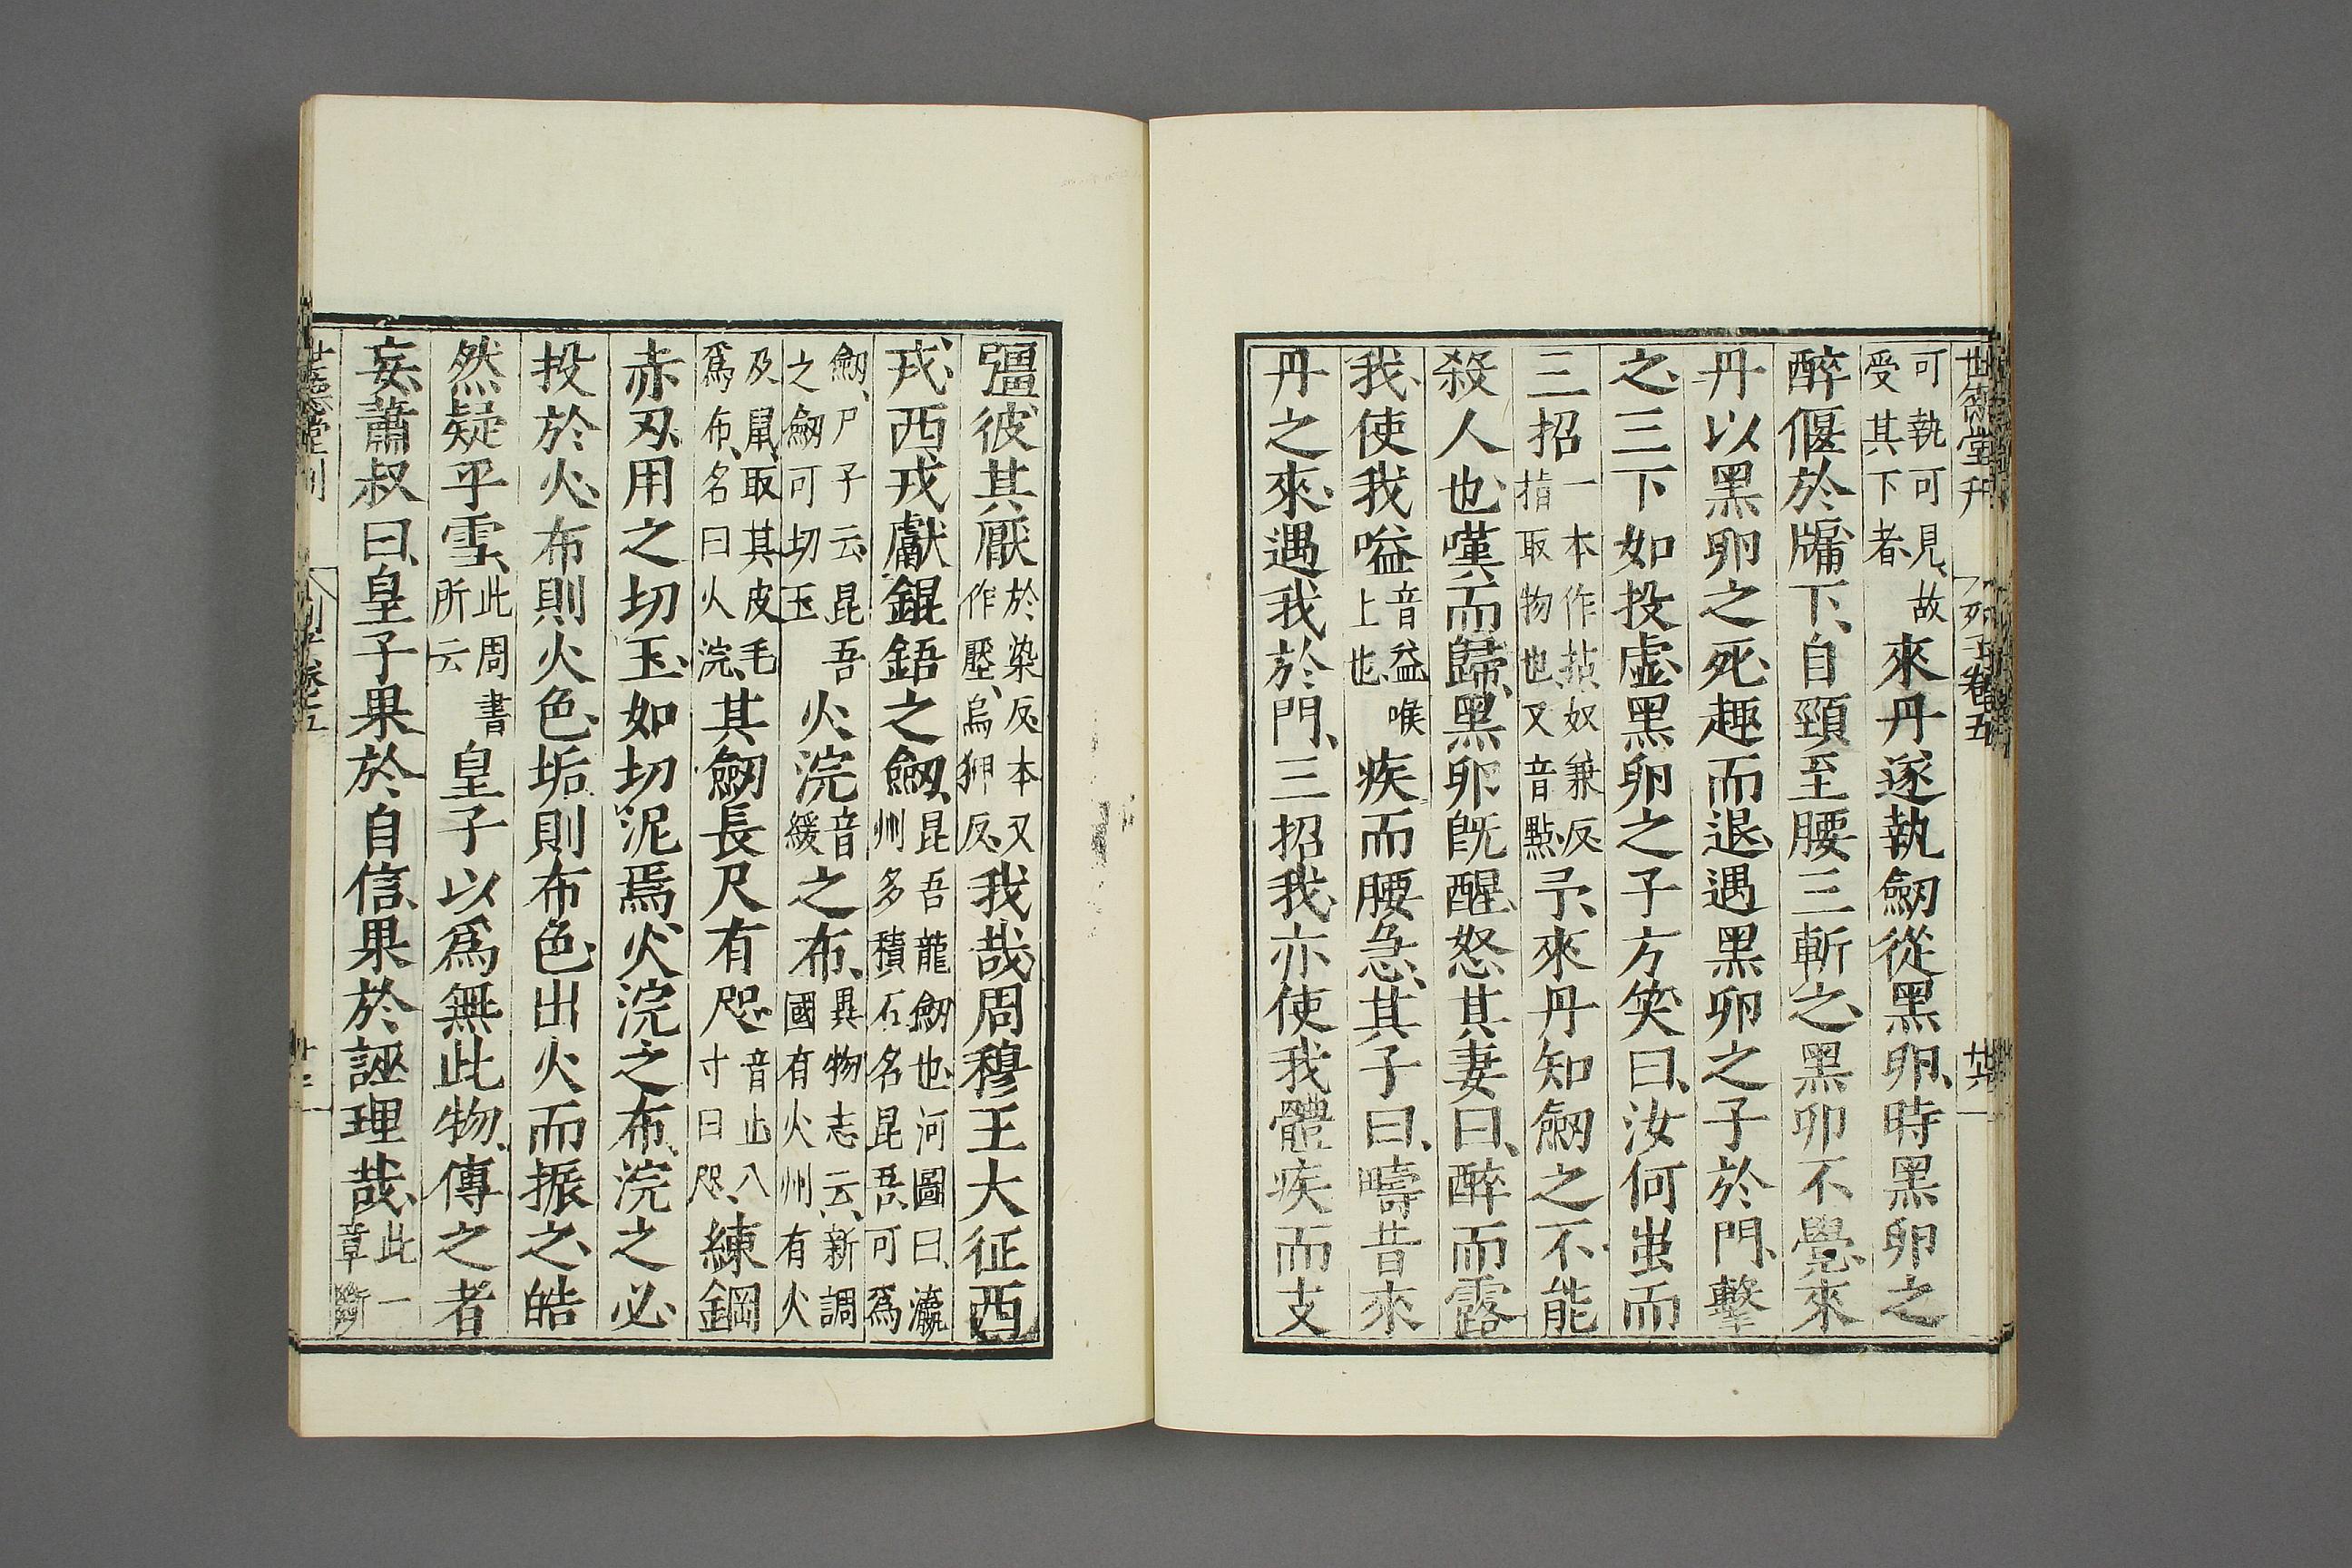 世德堂刊 列子卷五 廿六
可執可見故受其下者來丹遂執劒從黑卵時黑卵之
醉偃於牖下自頸至腰三斬之黑卵不覺來
丹以黑卵之死趣而退遇黑卵之子於門擊
之三下如投虛黑卵之子方笑曰汝何蚩而
三招一本作𢫾奴兼反指取物也又音點予來丹知劒之不能
殺人也嘆而歸黑卵旣醒怒其妻曰醉而露
我使我嗌音益喉上也疾而腰急其子曰疇昔來
丹之來遇我於門三招我亦使我體疾而支
彊彼其厭於染反本又作壓烏狎反我哉周穆王大征西
戎西戎獻錕鋙之劒昆吾龍劒也河圖曰瀛州多積石名昆吾可爲
劒尸子云昆吾之劒可切玉火浣音緩之布異物志云新調國有火州有火
及鼠取其皮毛爲布名曰火浣其劒長尺有咫音止八寸曰咫練鋼
赤刃用之切玉如切泥焉火浣之布浣之必
投於火布則火色垢則布色出火而振之皓
然疑乎雪此周書所云皇子以爲無此物傳之者
妄蕭叔曰皇子果於自信果於誣理哉此一章斷
世德堂刊 列子卷之五